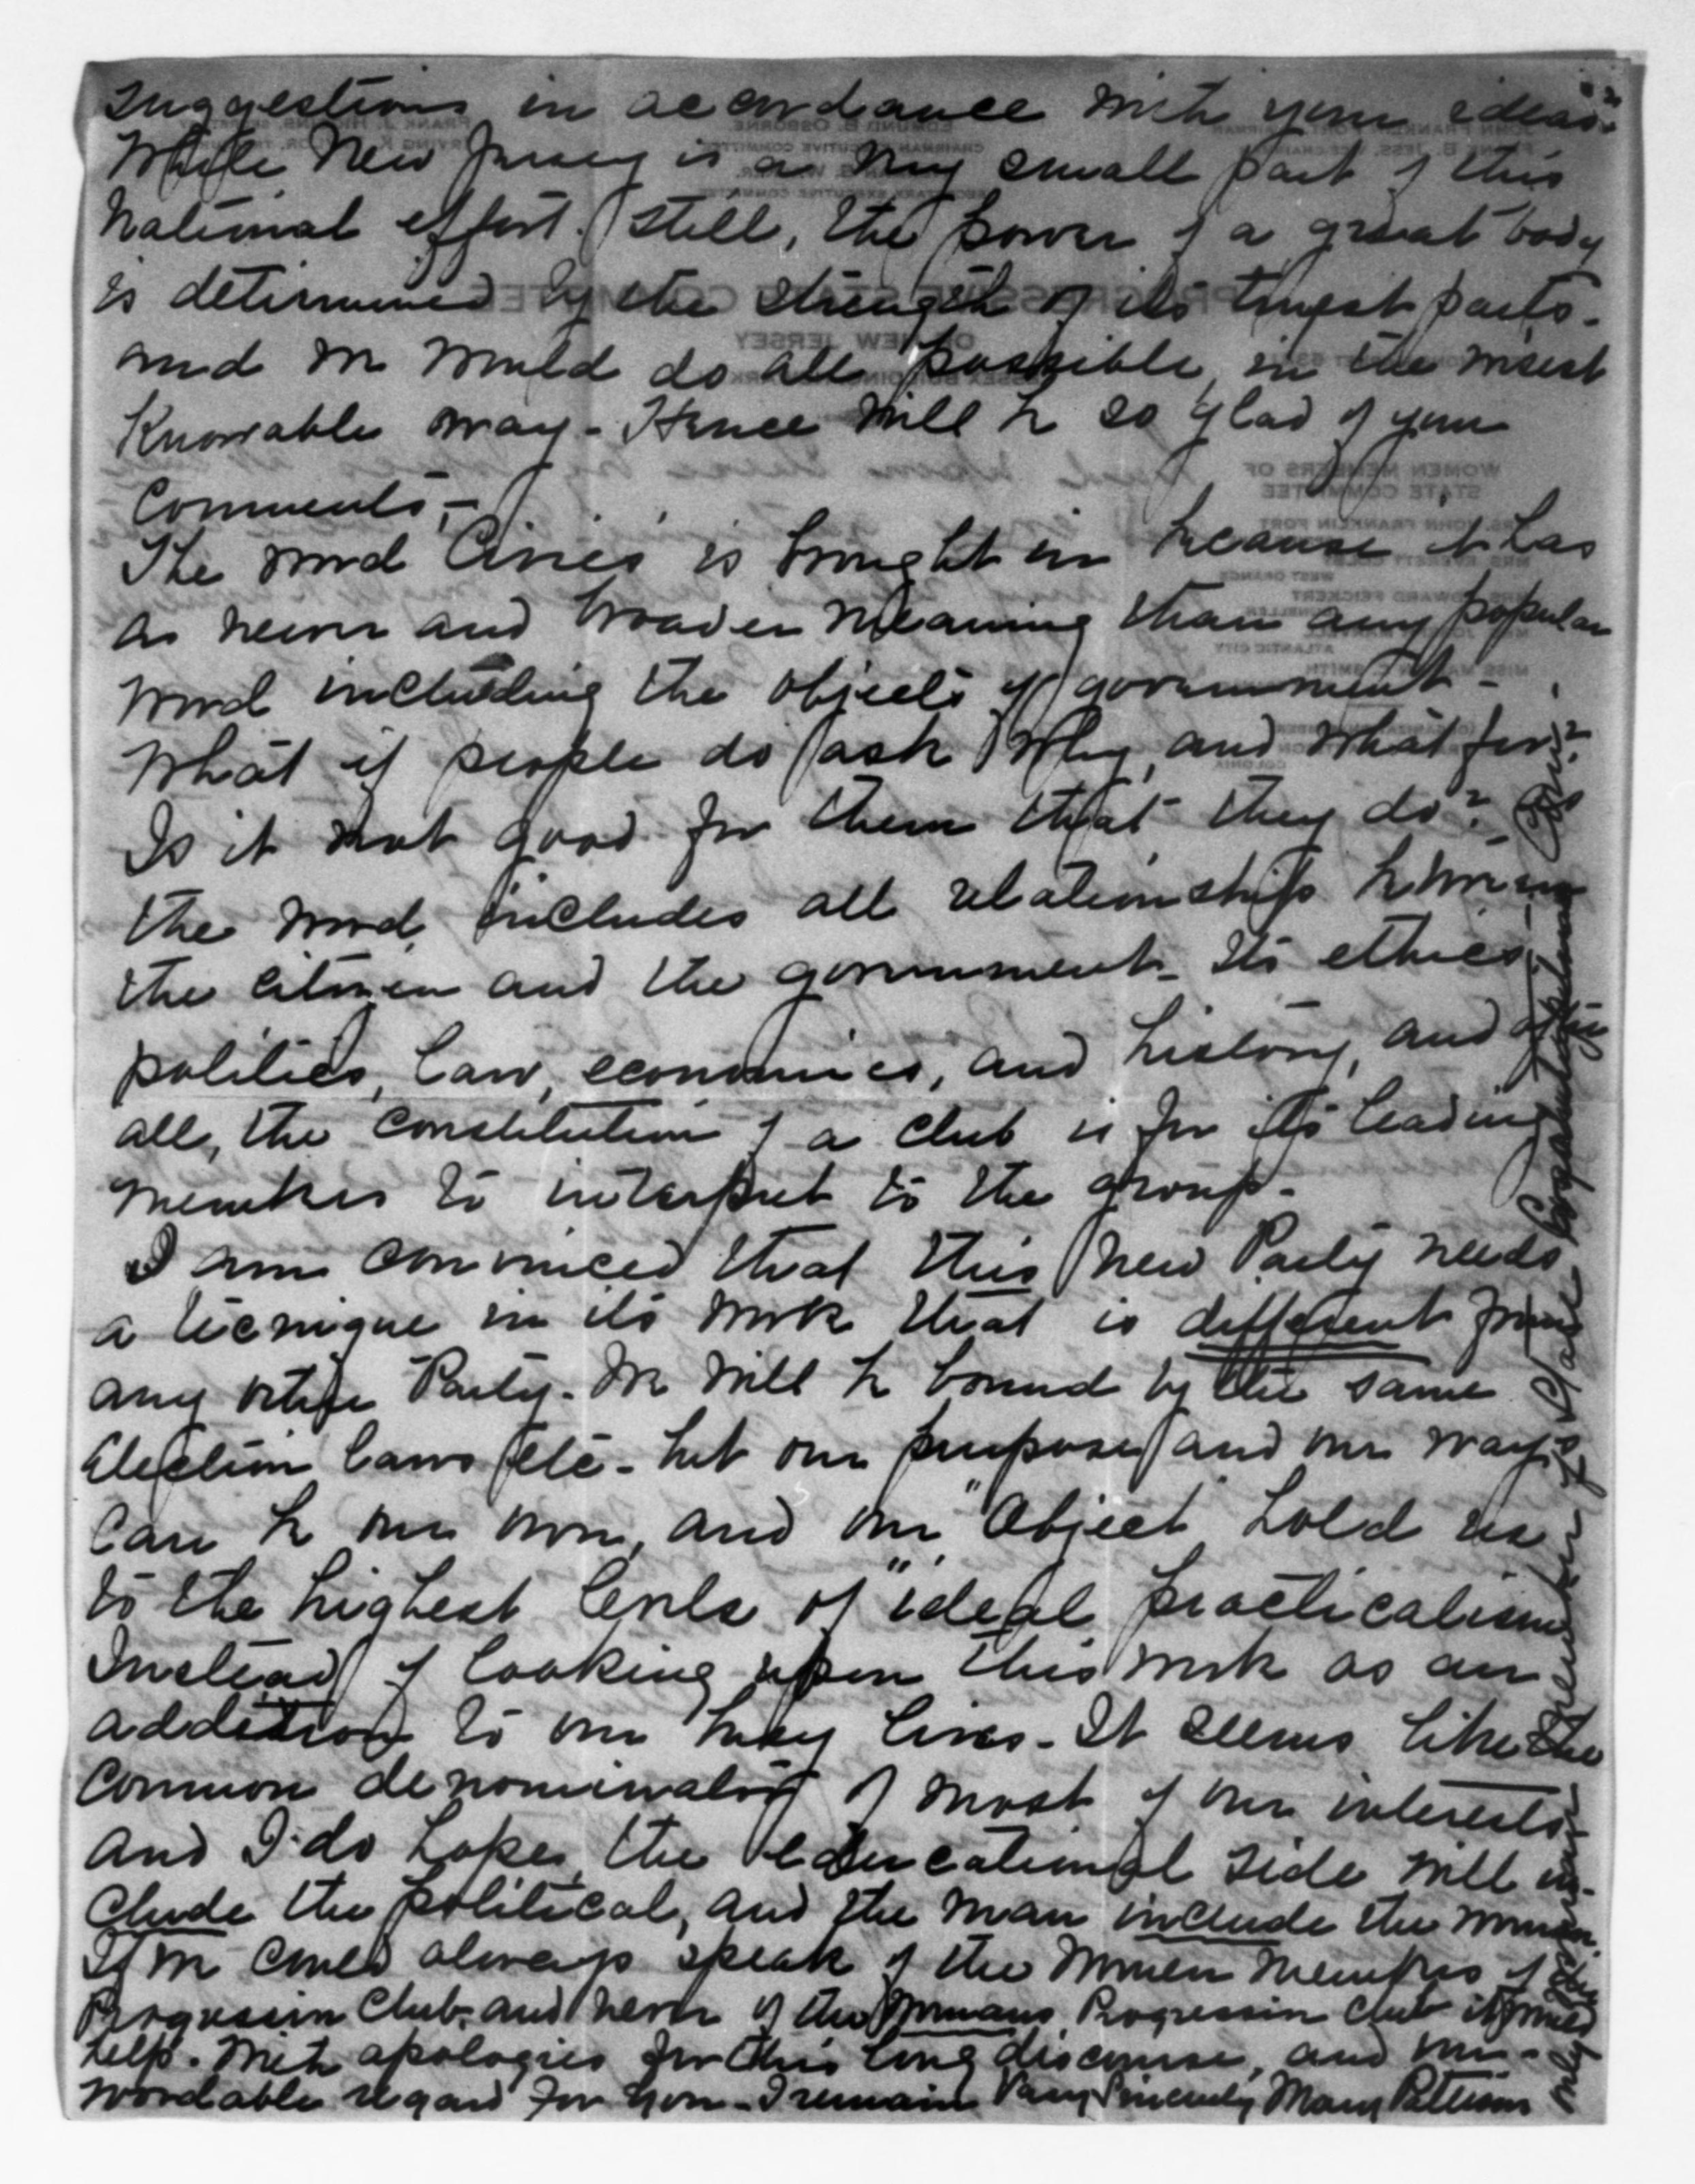 suggestions in accordance with your ideas.
While New Jersey is a very small part of this
National effort. Still, the power of a great body
is determined by the strength of its tiniest parts.
and we would do all possible, in the wisest
Knowable way - Hence will be so glad of your
Comments, -
The word 'Civics' is brought in because it has
a newer and broader meaning than any popular
word including the objects of government -
What if people do ask Why, and what for?
Is it not good for them that they do?
the word includes all relationships between
the citizen and the government - Its ethics
politics, law, economics, and history, and after
all, the constitution of a club is for its leading
members to interpret to the group -
I am convinced that this new Party needs
a tecnique in its work that is different from
any other Party. We will be bound by the same
Election laws etc - but our purpose and our ways
can be our own, and our "Object" hold us
to the highest levels of "ideal practicalism
Instead of looking upon this work as an
addition to our busy lives - It seems like the
Common denominator of most of our interests -
and I do hope, the educational side will in-
clude the political, and the man include the woman.
If we could always speak of the Women Members of
Progressive Club, and never of the Womans Progressive Club it would
help. With apologies for this long discourse, and un-
wordable regard for you - I remain Very Sincerely Mary Pattison
PROGRESSIVE STATE COMMITTEE
OF NEW JERSEY
WOMEN MEMBERS OF
STATE COMMITTEE